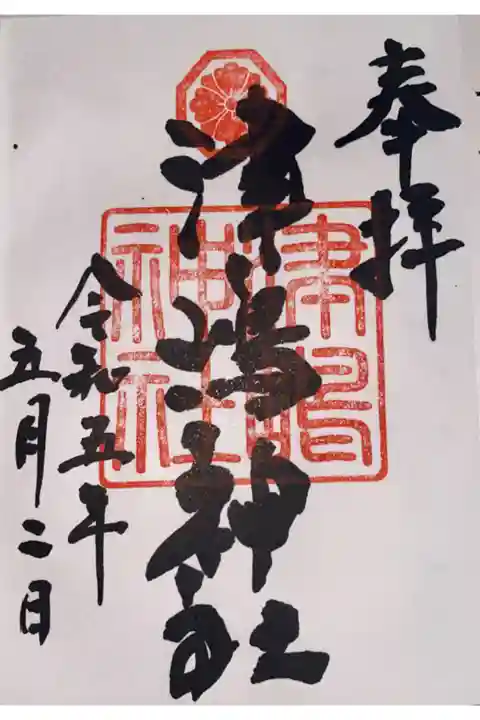 奉拝
津嶋神社
津嶋神社
令和五年
五月二日